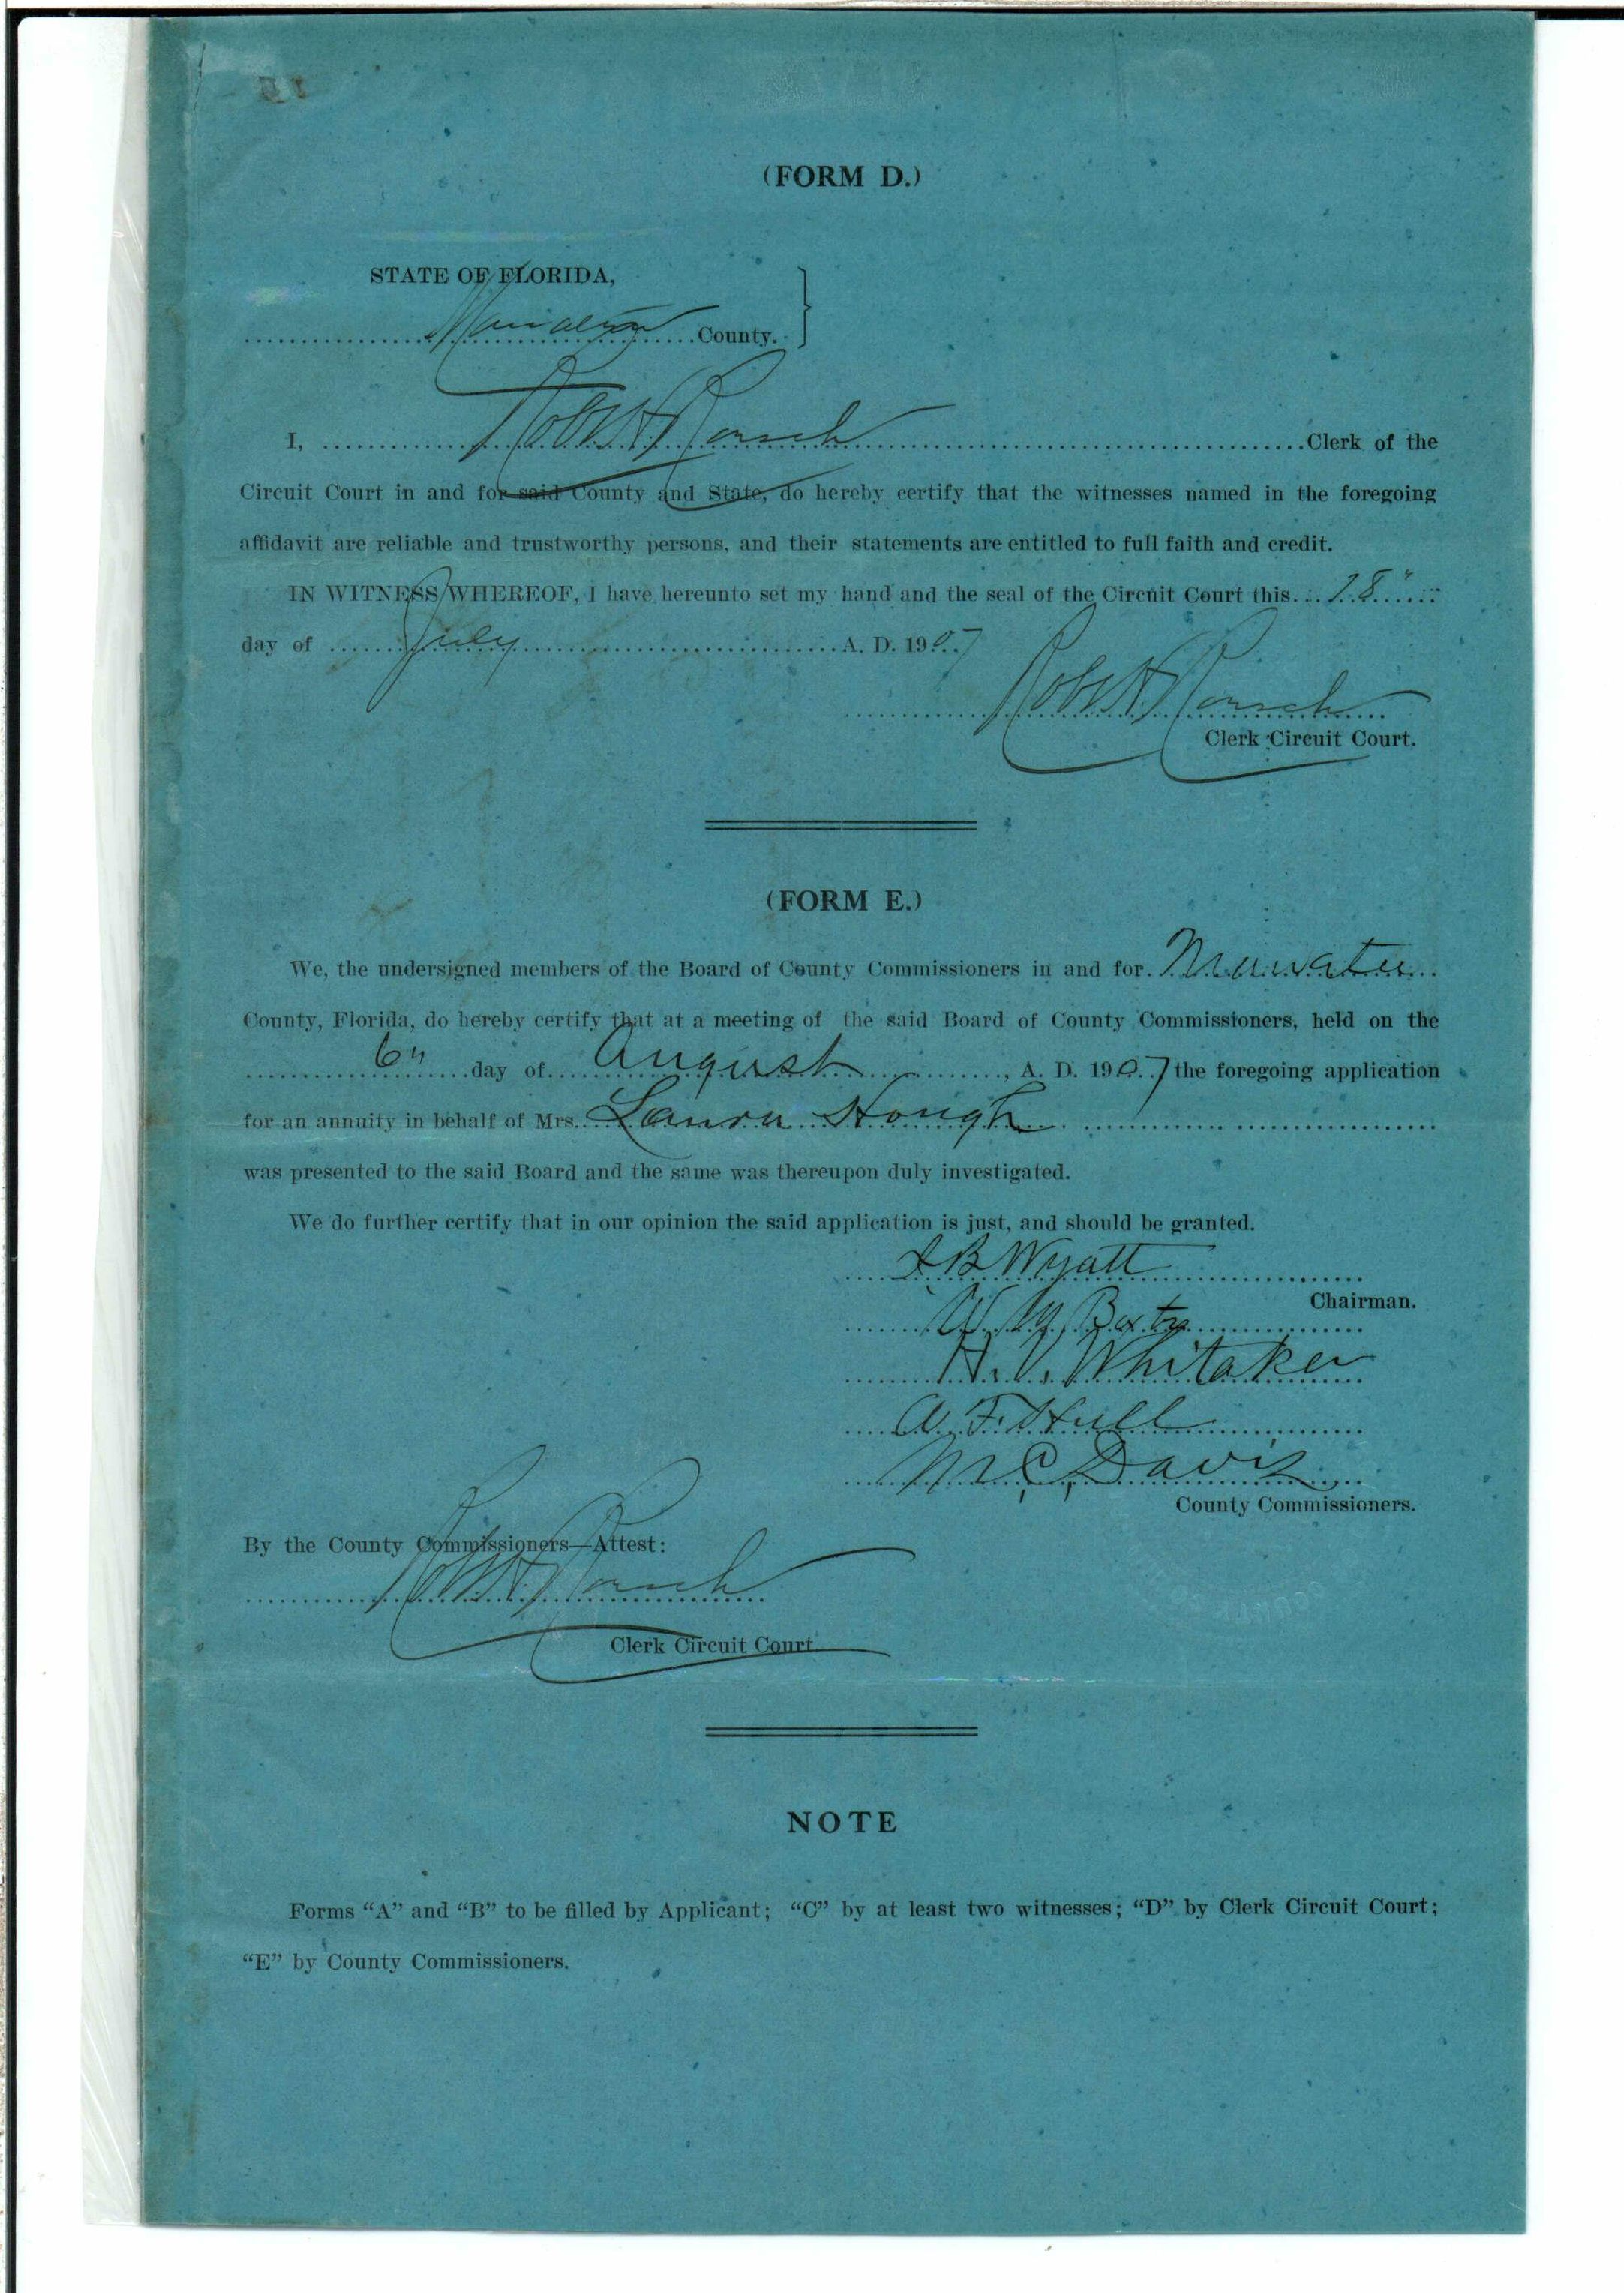 (FORM D.)
STATE OF FLORIDA,
Manatee County.
I, Robt H Roesch Clerk of the
Circuit Court in and for said County and State, do hereby certify that the witnesses named in the foregoing
affidavit are reliable and trustworthy persons, and their statements are entitled to full faith and credit.
IN WITNESS WHEREOF, I have hereunto set my hand and the seal of the Circuit Court this 18"
day of July A. D. 1907
Robt H Roesch
Clerk Circuit Court.
(FORM E.)
We, the undersigned members of the Board of County Commissioners in and for Manatee
County, Florida, do hereby certify that at a meeting of the said Board of County Commissioners, held on the
6" day of August, A. D. 1907 the foregoing application
for an annuity in behalf of Mrs. Laura Hough
was presented to the said Board and the same was thereupon duly investigated.
We do further certify that in our opinion the said application is just, and should be granted.
B Wyatt
Chairman.
W. M.
H. V. Whitaker
A. F. Hull
M. C. Davis
County Commissioners.
By the County Commissioners—Attest:
Robt H Roesch
Clerk Circuit Court
NOTE
Forms “A” and “B” to be filled by Applicant; “C” by at least two witnesses; “D” by Clerk Circuit Court;
“E” by County Commissioners.